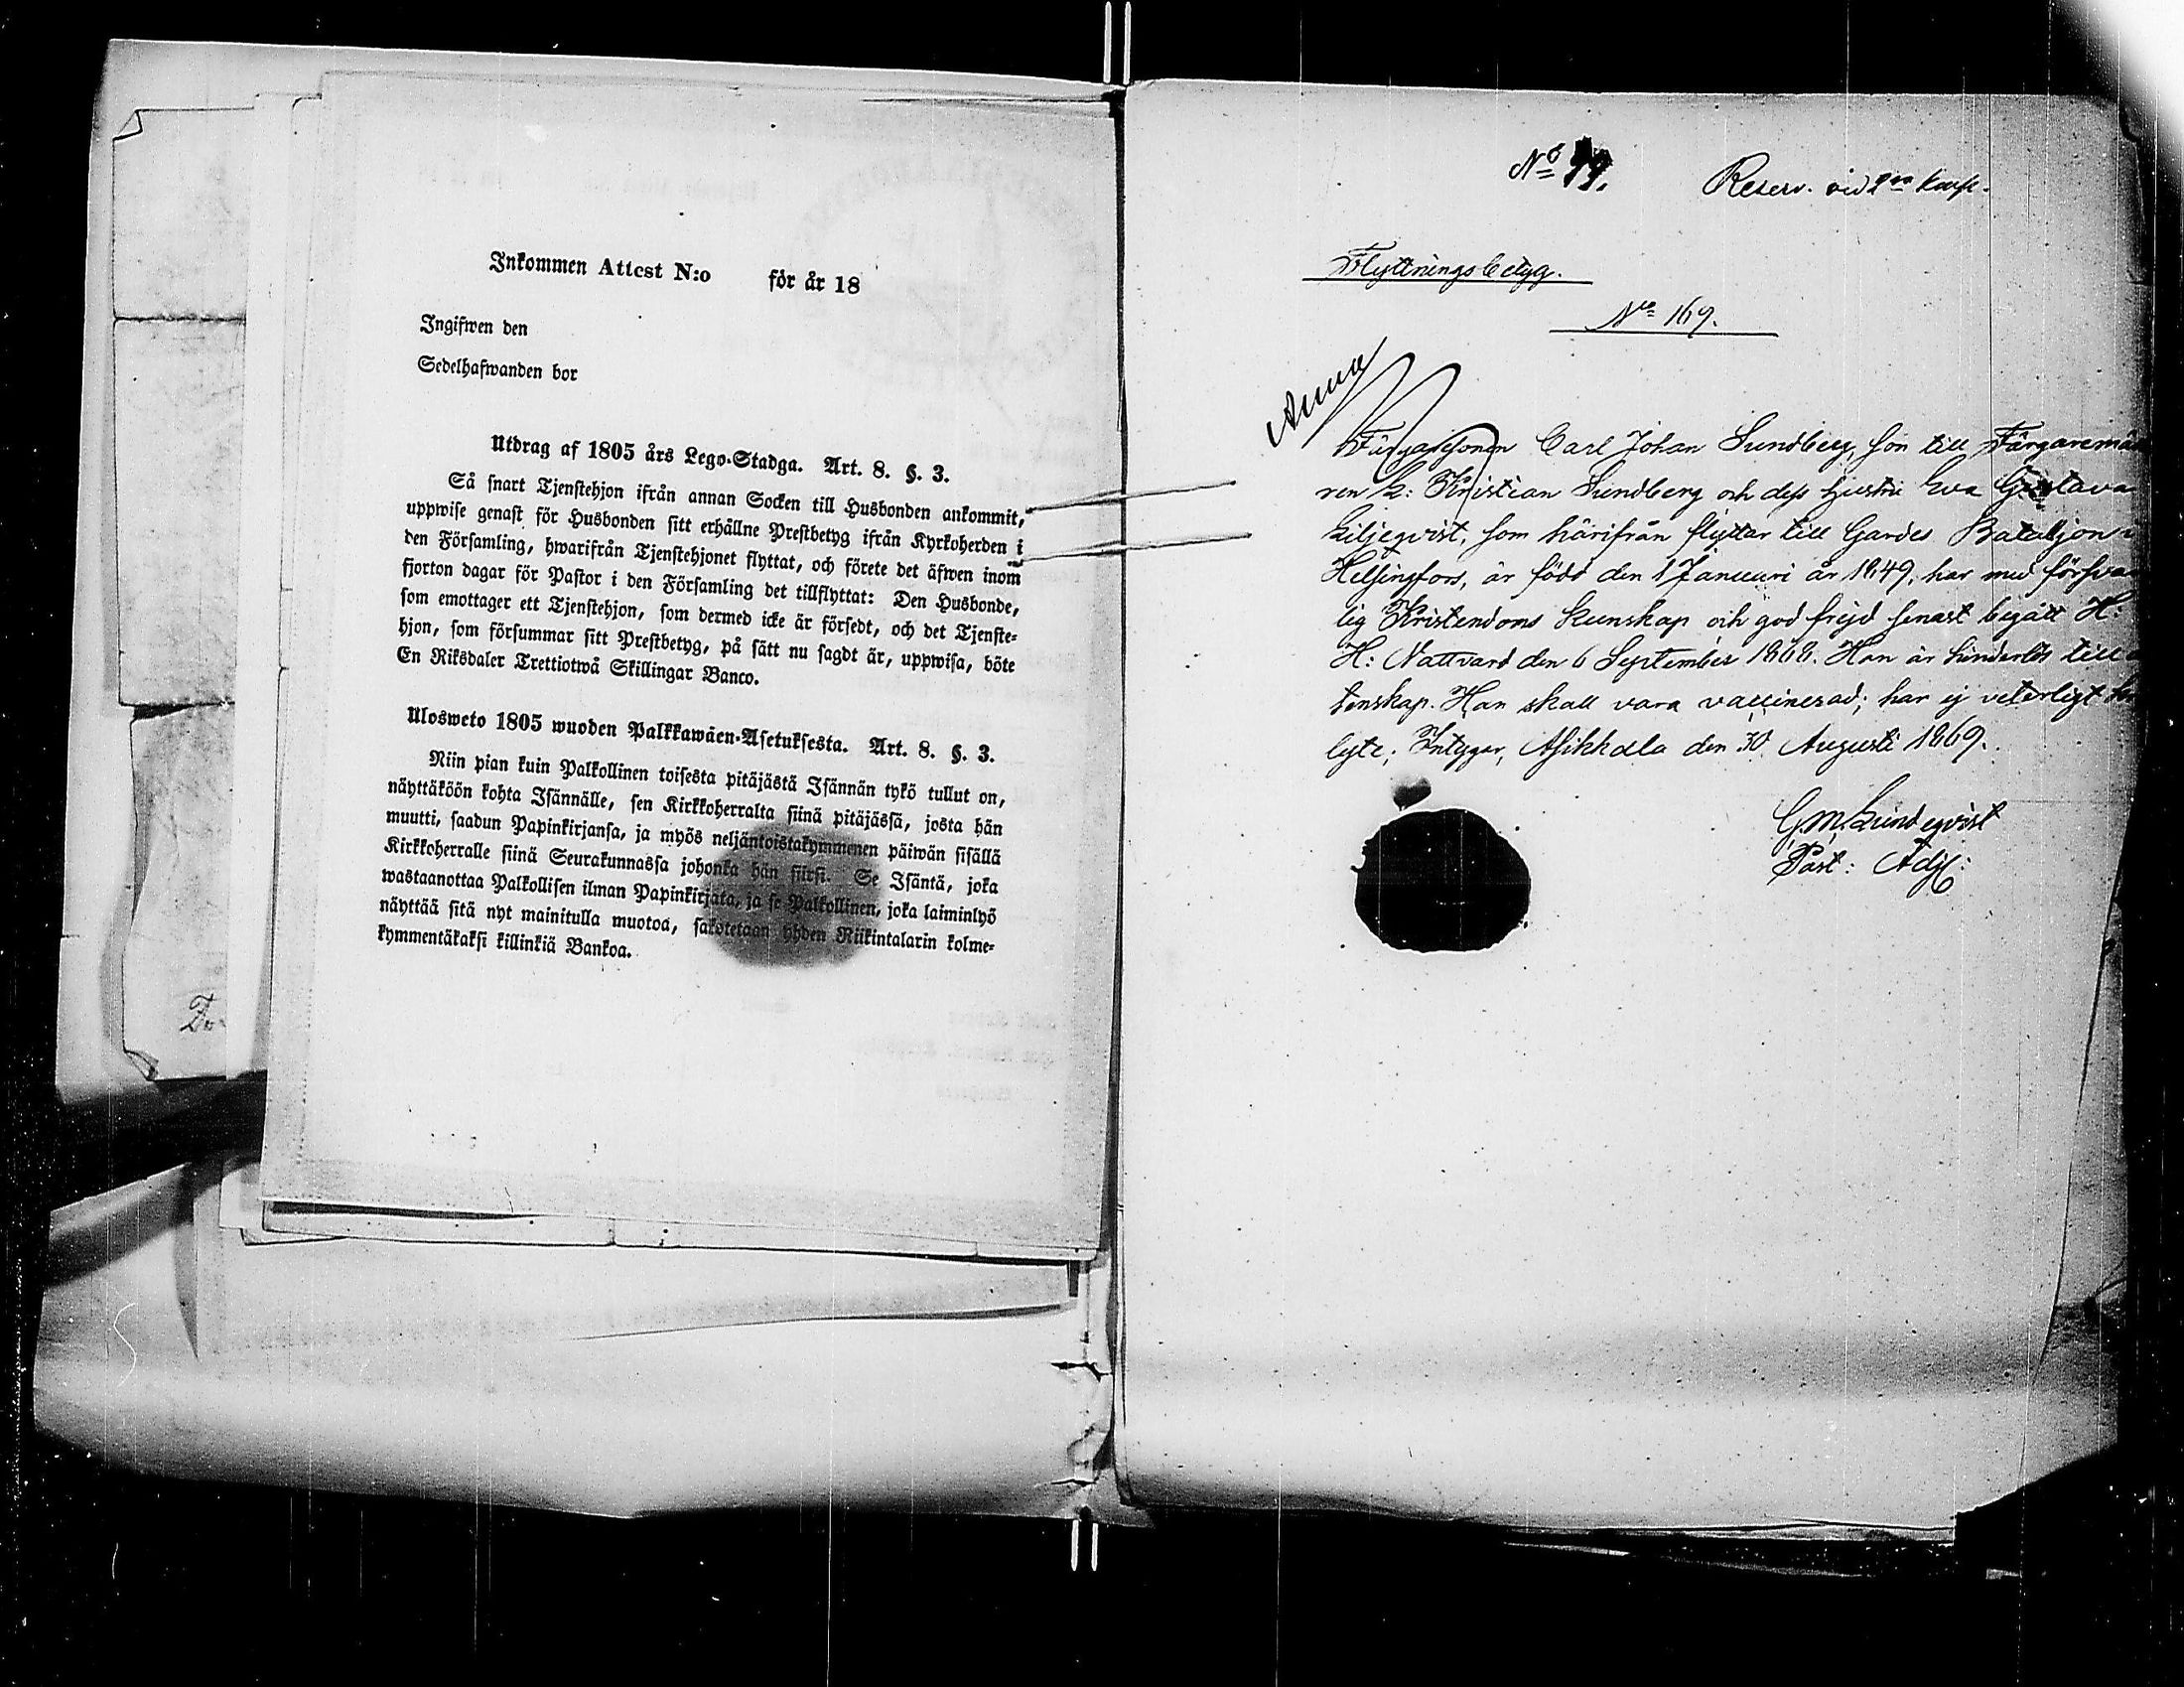 Inkommen Attest N:o för år 18
Ingifwen den
Sedelhafwanden bor
Utdrag af 1805 års Lego-Stadga. Art. 8. §. 3.
Så snart Tjenstehjon ifrån annan Socken till Husbonden ankommit,
uppwise genast för Husbonden sitt erhållne Prestbetyg ifrån Kyrkoherden i
den Församling, hwarifrån Tjenstehjonet flyttat, och förete det äfwen inom
fjorton dagar för Pastor i den Församling det tillflyttat: Den Husbonde,
som emottager ett Tjenstehjon, som dermed icke är försedt, och det Tjenste-
hjon, som försummar sitt Prestbetyg, på sätt nu sagdt är, uppwisa, böte
En Riksdaler Trettiotwå Skillingar Banco.
Ulosweto 1805 wuoden Palkkawäen-Asetuksesta. Art. 8. §. 3.
Niin pian kuin Palkollinen toisesta pitäjästä Isännän tykö tullut on,
näyttäköön kohta Isännälle, sen Kirkkoherralta siinä pitäjässä, josta hän
muutti, saadun Papinkirjansa, ja myös neljäntoistakymmenen päiwän sisällä
Kirkkoherralle siinä Seurakunnassa johonka hän siirsi. Se Isäntä, joka
wastaanottaa Palkollisen ilman Papinkirjata, ja se Palkollinen, joka laiminlyö
näyttää sitä nyt mainitulla muotoa, sakotetaan yhden Riikintalarin kolme-
kymmentäkaksi killinkiä Bankoa.
Nº 99. Reserv. vid komp.
Flyttningsbetyg.
Nº 169.
Anna
Färgaresonen Carl Johan Sundberg, son till Färgaremä
ren K: Kristian Sundberg och dess hustru Eva Gustava
Liljeqvist, som härifrån flyttar till Gardes Bataljon i
Helsingfors, är född den 1 Januari år 1849, har med försva
lig Kristendoms kunskap och god frejd senast begått H:
H: Nattvard den 6 September 1868. Han är hinderlös till
tenskap. Han skall vara vaccinerad; har ej veterligt
lyte; Intygar, Asikkala den 30 Augusti 1869.
G.M. Lindeqvist
Past: Adj: